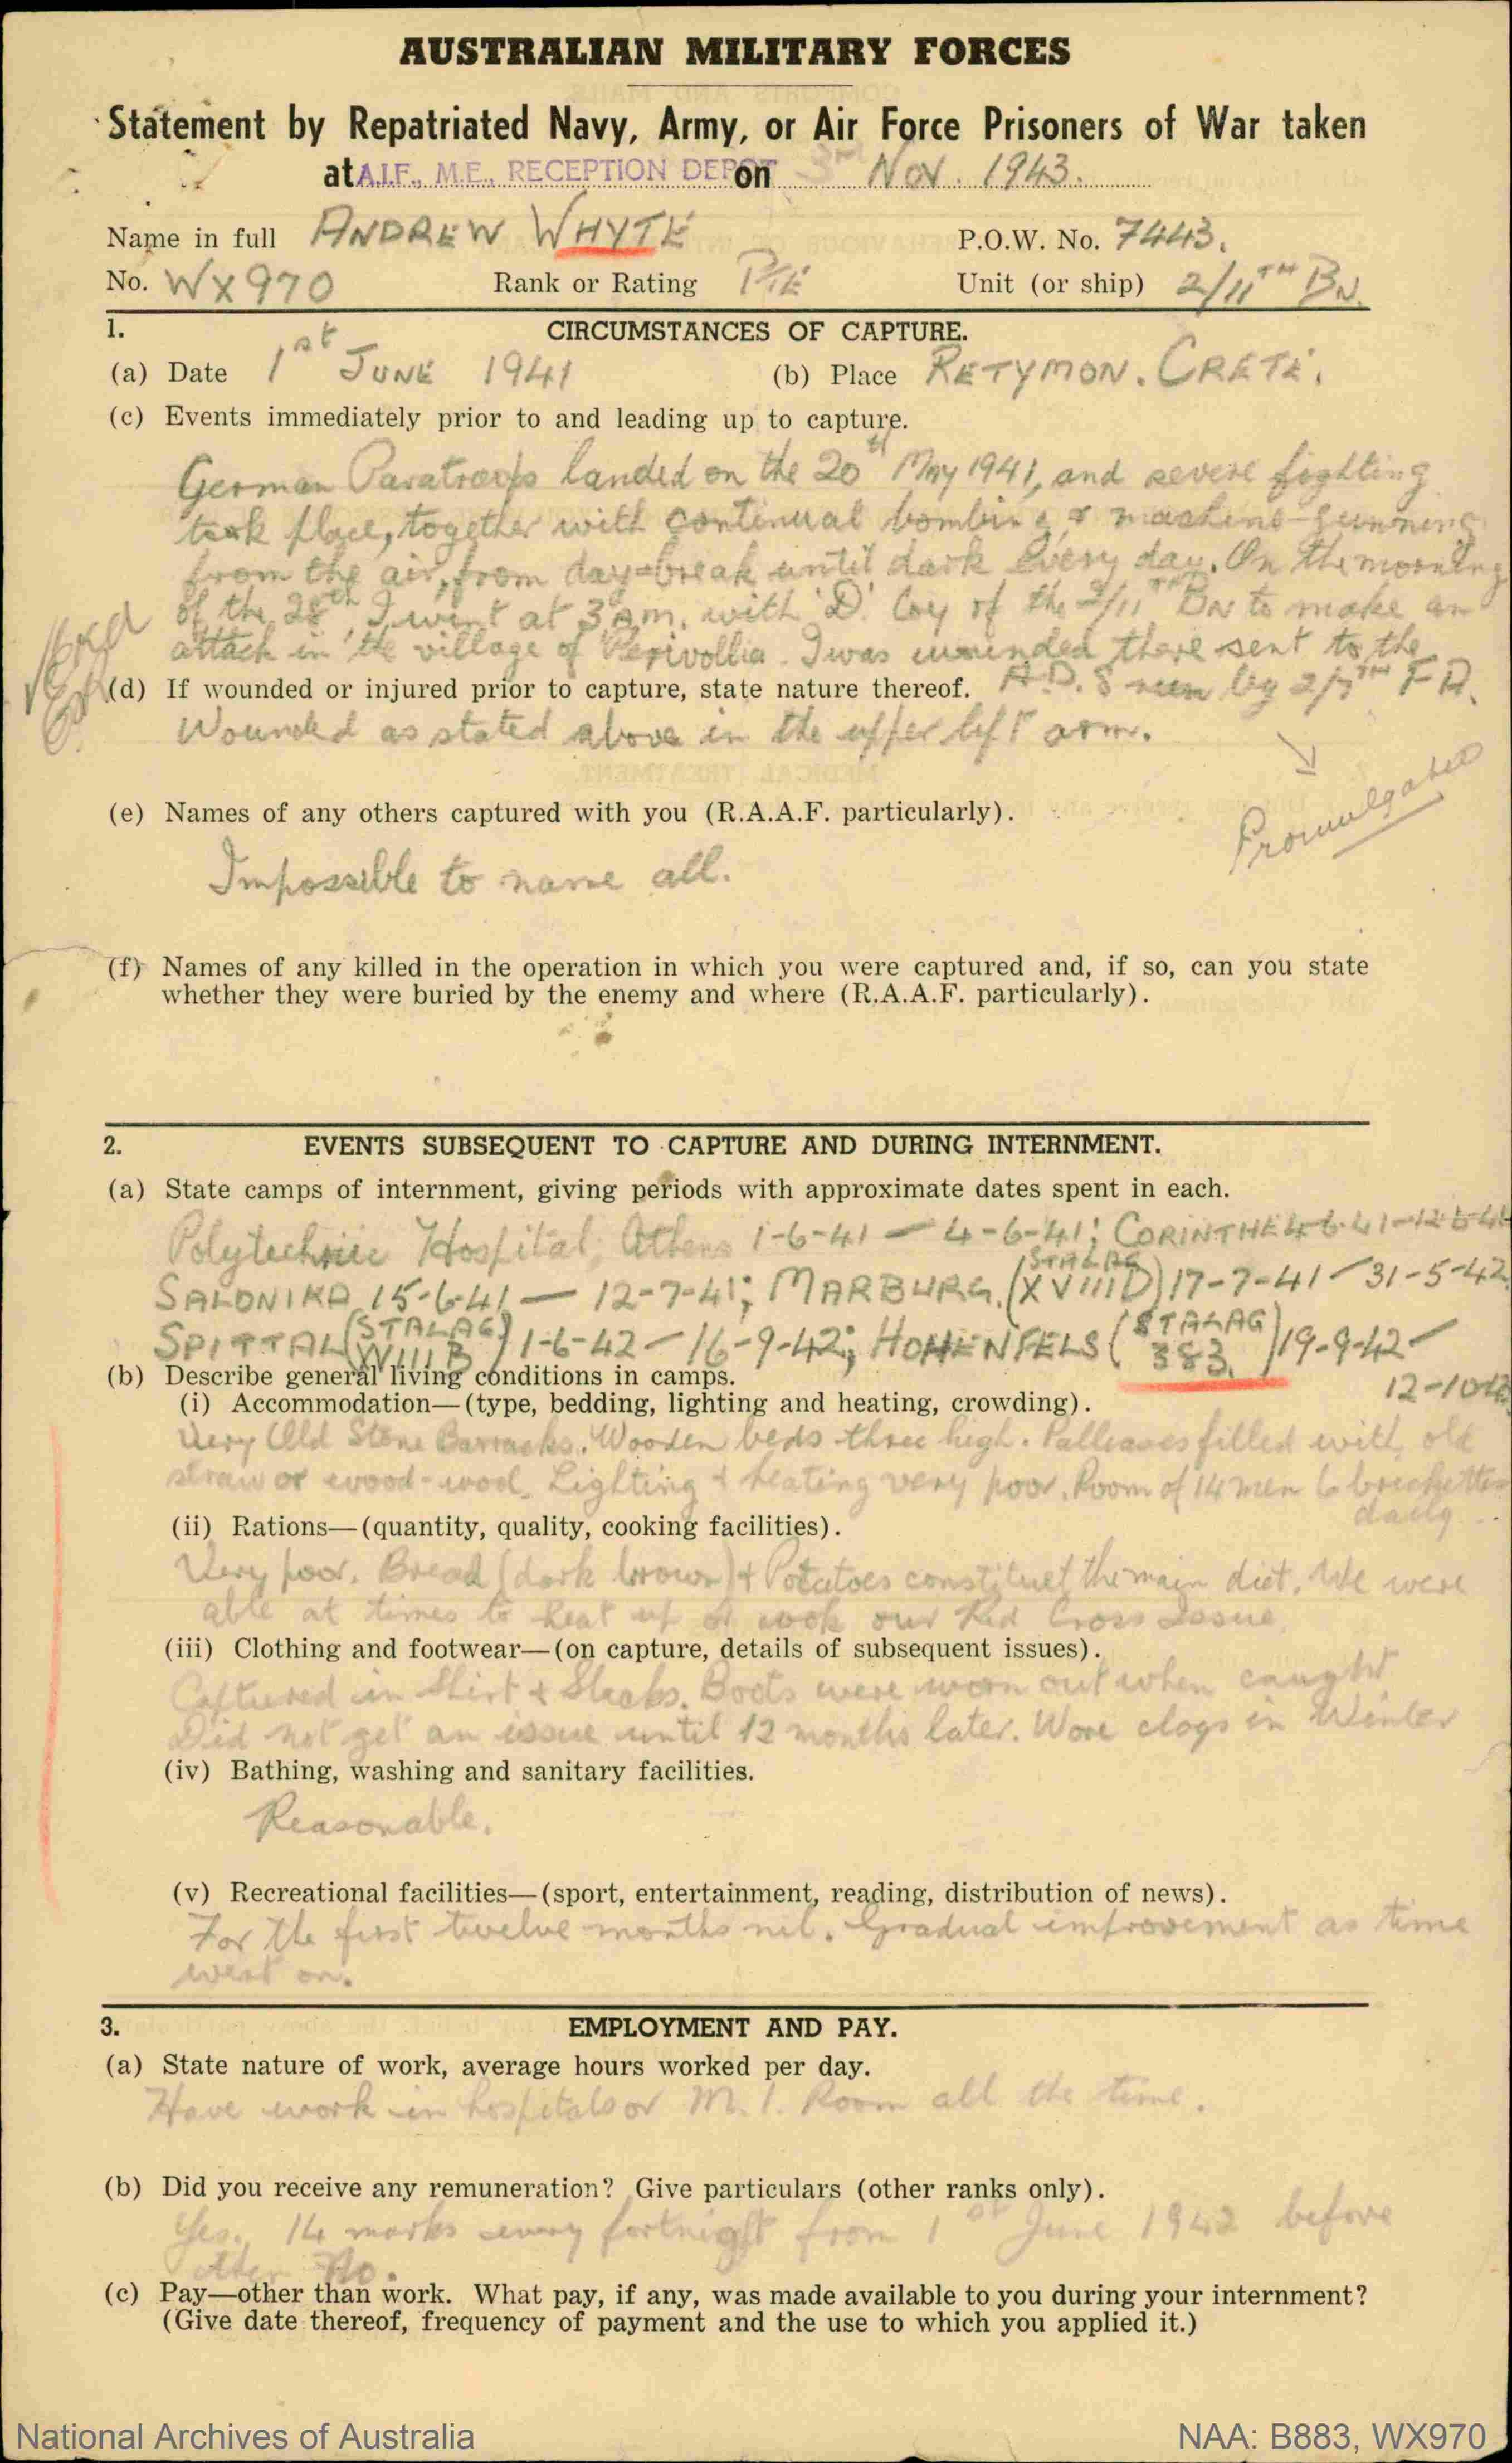 AUSTRALIAN MILITARY FORCES
Statement by Repatriated Navy, Army, or Air Force Prisoners of War taken
at A.I.F., M.E., RECEPTION DEPOT on 3rd Nov. 1943.
Name in full ANDREW WHYTE P.O.W. No. 7443.
No. WX970 Rank or Rating PTE Unit (or ship) 2/11TH BN.
1. CIRCUMSTANCES OF CAPTURE.
(a) Date 1st JUNE 1941 (b) Place RETYMON. CRETE.
(c) Events immediately prior to and leading up to capture.
German Paratroops landed on the 20th May 1941, and severe fighting
took place, together with continual bombing & machine-gunning
from the air, from day-break until dark every day. On the morning
of the 28th I went at 3 am. with 'D' Coy of the 2/11TH BN to make an
attack in the village of Perivollia. I was wounded there sent to the
(d) If wounded or injured prior to capture, state nature thereof. A.D.S run by 2/7TH F A.
Wounded as stated above in the upper left arm.
Promulgated
(e) Names of any others captured with you (R.A.A.F. particularly).
Impossible to name all.
(f) Names of any killed in the operation in which you were captured and, if so, can you state
whether they were buried by the enemy and where (R.A.A.F. particularly).
2. EVENTS SUBSEQUENT TO CAPTURE AND DURING INTERNMENT.
(a) State camps of internment, giving periods with approximate dates spent in each.
Polytechnic Hospital, Athens 1-6-41 — 4-6-41; CORINTH 4-6-41-12-6-41
SALONIKA 15-6-41 — 12-7-41; MARBURG. (STALAG XVIIID) 17-7-41 — 31-5-42
SPITTAL (STALAG XVIIIB) 1-6-42 — 16-9-42; HOHENFELS (STALAG 383.) 19-9-42 —
12-10-43
(b) Describe general living conditions in camps.
(i) Accommodation—(type, bedding, lighting and heating, crowding).
Very Old Stone Barracks. Wooden beds three high. Palliasses filled with old
straw or wood-wool. Lighting & heating very poor. Room of 14 men 6 brickettes
daily
(ii) Rations—(quantity, quality, cooking facilities).
Very poor. Bread (dark brown) & Potatoes constituet the main diet. We were
able at times to heat up or cook our Red Cross Issue.
(iii) Clothing and footwear—(on capture, details of subsequent issues).
Captured in Shirt & Slacks. Boots were worn out when caught
Did not get an issue until 12 months later. Wore clogs in Winter
(iv) Bathing, washing and sanitary facilities.
Reasonable.
(v) Recreational facilities—(sport, entertainment, reading, distribution of news).
For the first twelve months nil. Gradual improvement as time
went on.
3. EMPLOYMENT AND PAY.
(a) State nature of work, average hours worked per day.
Have work in hospitals or M. I. Room all the time.
(b) Did you receive any remuneration? Give particulars (other ranks only).
Yes, 14 marks every fortnight from 1st June 1942 before
No.
(c) Pay—other than work. What pay, if any, was made available to you during your internment?
(Give date thereof, frequency of payment and the use to which you applied it.)
National Archives of Australia NAA: B883, WX970